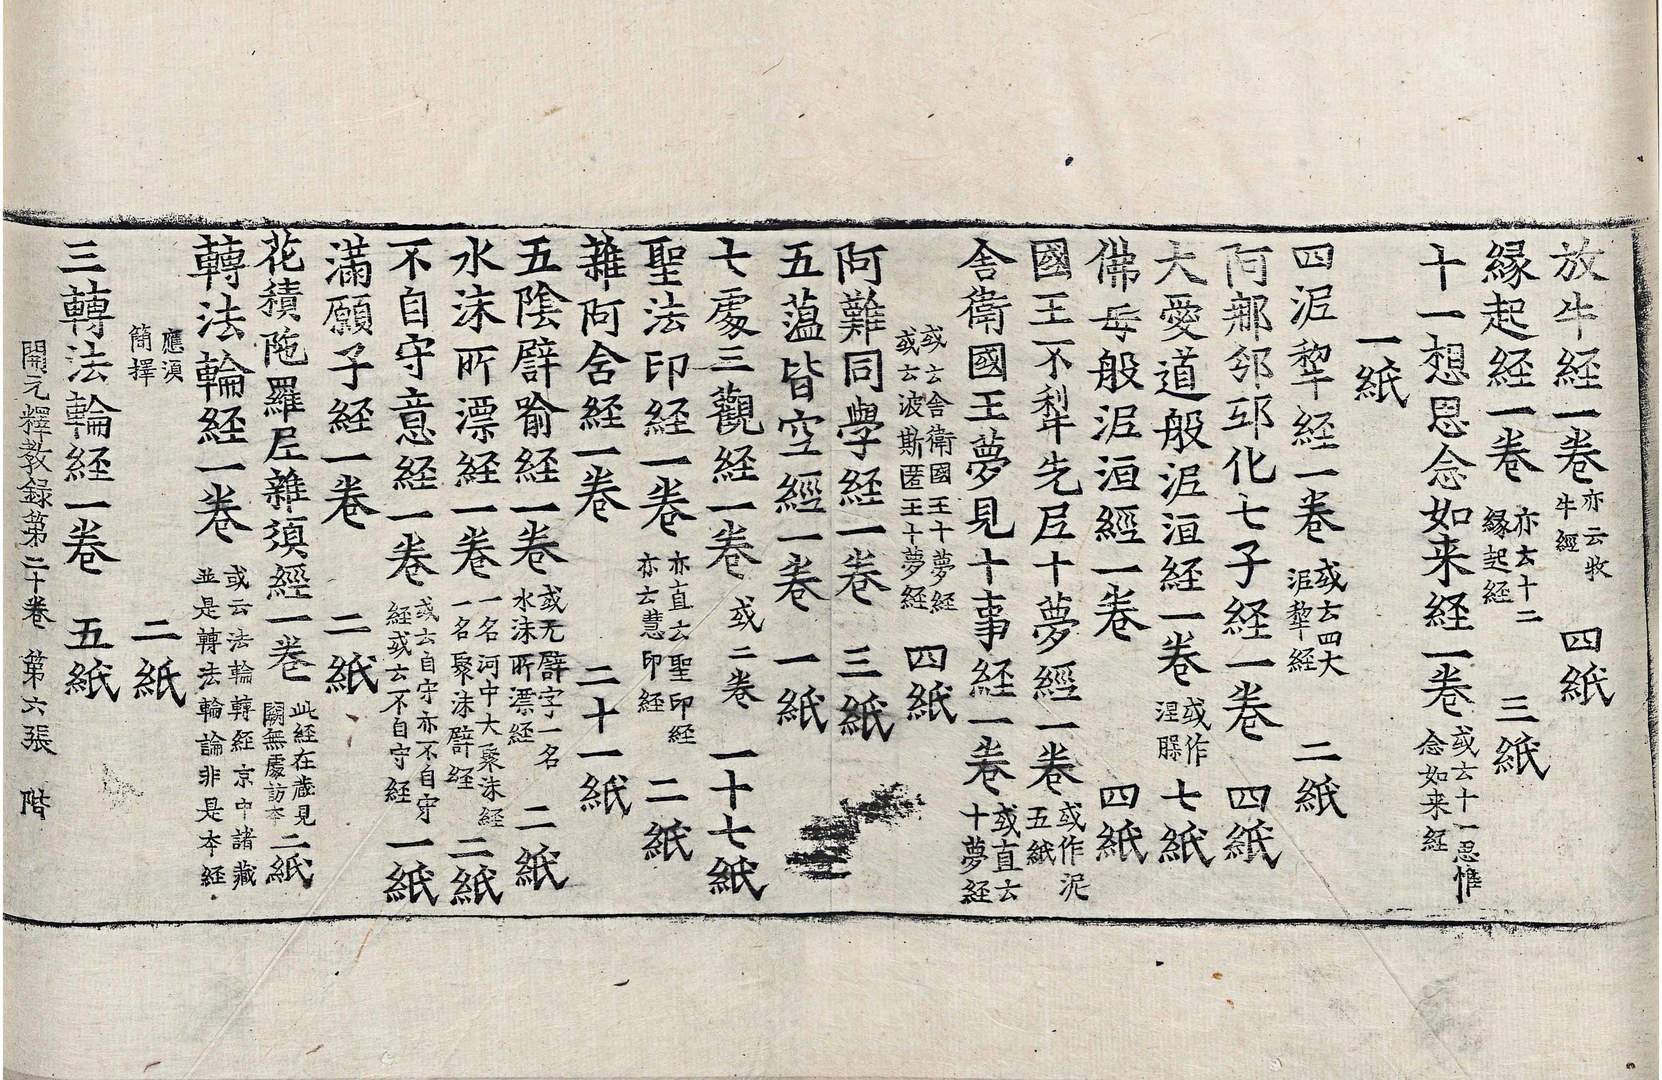 放牛経一卷亦云牧牛經 四紙
縁起経一卷亦云十二縁起経 三紙
十一想思念如来経一卷或云十一思惟念如来経
一紙
四泥犂経一卷或云四大泥犂経 二紙
阿𨚗邠邸化七子経一卷 四紙
大愛道般泥洹経一卷或作涅槃 七紙
佛母般泥洹經一卷 四紙
國王不犂先尼十夢經一卷或作泥 五紙
舍衛國王夢見十事経一卷或直云十夢経
或云舍衛國王十夢経或云波斯匿王十夢経 四紙
阿難同學経一卷 三紙
五蕰皆空經一卷 一紙
七處三觀経一卷或二卷 一十七紙
聖法印経一卷亦直云聖印経亦云慧印経 二紙
雜阿含経一卷 二十一紙
五陰譬喻経一卷或无譬字一名水沫所漂経 二紙
水沫所漂経一卷一名河中大聚沫経一名聚沫譬経 二紙
不自守意経一卷或云自守亦不自守経或云不自守経 一紙
滿願子経一卷 二紙
花積陁羅尼雜湏經一卷此経在藏見闕無處訪夲 二紙
轉法輪経一卷或云法輪轉経京中諸藏並是轉法輪論非是夲経
應湏簡擇 二紙
三轉法輪経一卷 五紙
開元釋教録第二十卷 第六張 階